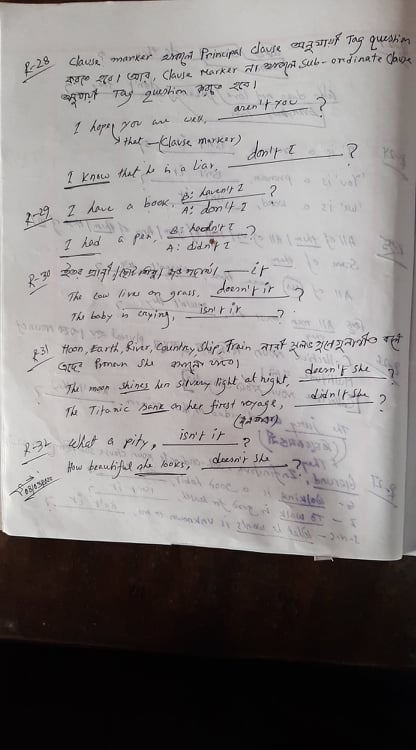 R-28 Clause marker থাকলে Principal Clause অনুযায়ী Tag question
করতে হবে। তবে, Clause Marker না থাকলে Sub-ordinate Clause
অনুযায়ী Tag question করতে হবে।
I hope you are well, aren't you ?
that - (Clause marker)
I know that he is a liar, don't I ?
R-29 I have a book, B: haven't I ?
A: don't I
I had a pen, B: hadn't I ?
A: didn't I
R-30 ইতর প্রাণী / — it
The cow lives on grass, doesn't it ?
The baby is crying, isn't it ?
R-31 Moon, Earth, River, Country, Ship, Train নারী সুলভ
Pronoun she
The moon shines her silvery light at night, doesn't she ?
The Titanic sank on her first voyage, didn't she ?
R-32 What a pity, isn't it ?
How beautiful she looks, doesn't she ?